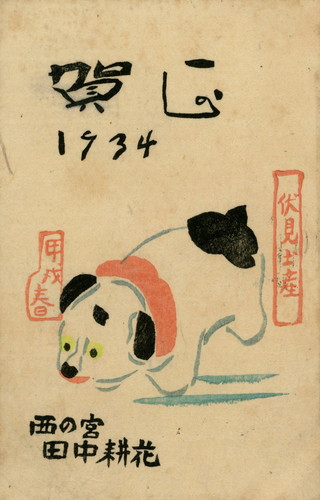 賀正
1934
伏見土産
甲戌春日
西の宮
田中耕花